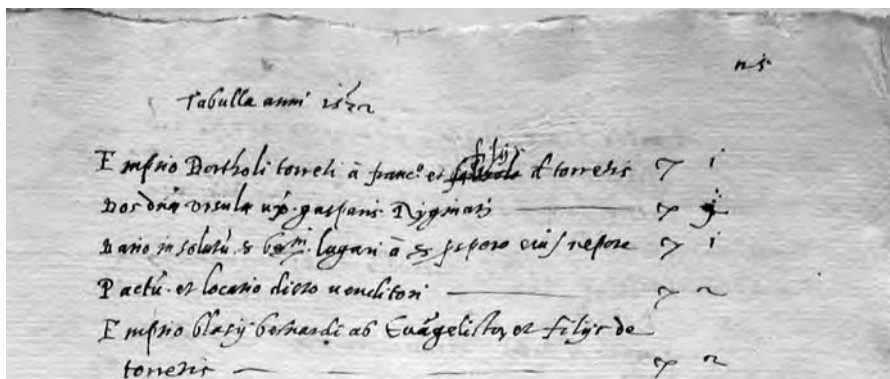 n 5
Tabulla anni 1572
Emptio Bortholi torreli à franc.o et filijs d torrelis 7 1
Dos dnã Ursula ux. gasparis Ryginati 7
Datio in solutũ lugari à nepote 7 1
Pactũ et locatio dicto venditori 7 2
Emptio blasij bernardi ab Evãgelista et filijs de
torrelis 7 2